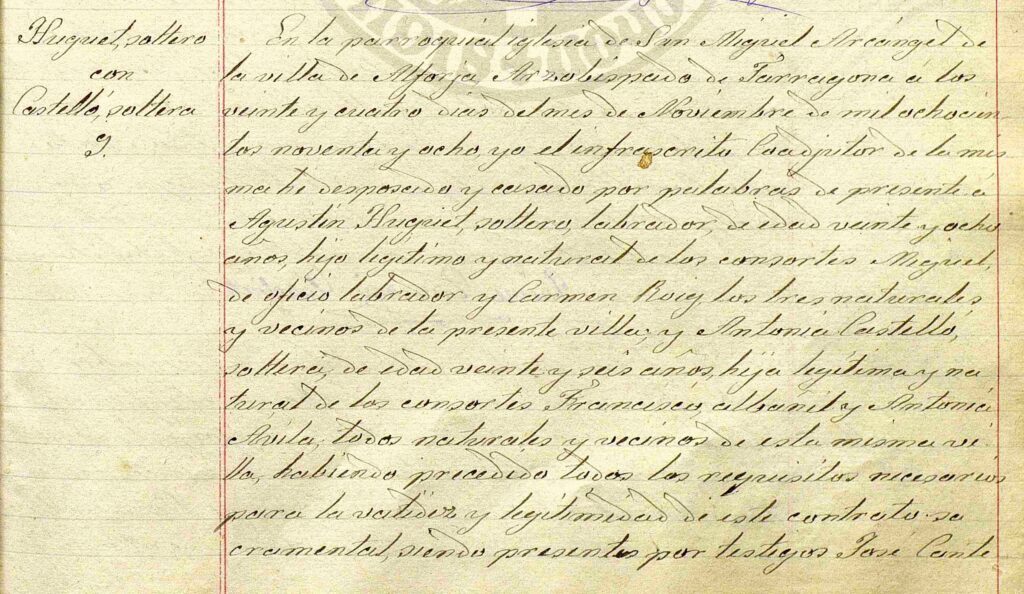 Huguet, soltero
con
Castelló, soltera
9.
En la parroquial iglesia de San Miguel Arcángel de
la villa de Alforja, Arzobispado de Tarragona á los
veinte y cuatro dias del mes de Noviembre de mil ochocien
tos noventa y ocho yo el infrascrito Coadjutor de la mis
ma hé desposado y casado por palabras de presente á
Agustín Huguet, soltero, labrador, de edad veinte y ocho
años, hijo legítimo y natural de los consortes Miguel,
de oficio labrador y Carmen Roig los tres naturales
y vecinos de la presente villa; y Antonia Castelló,
soltera, de edad veinte y seis años, hija legítima y na
tural de los consortes Francisco, albañil y Antonia
Avila, todos naturales y vecinos de esta misma vi-
lla, habiendo precedido todos los requisitos necesarios
para la validez y legitimidad de este contrato sa
cramental, siendo presentes por testigos José Cante